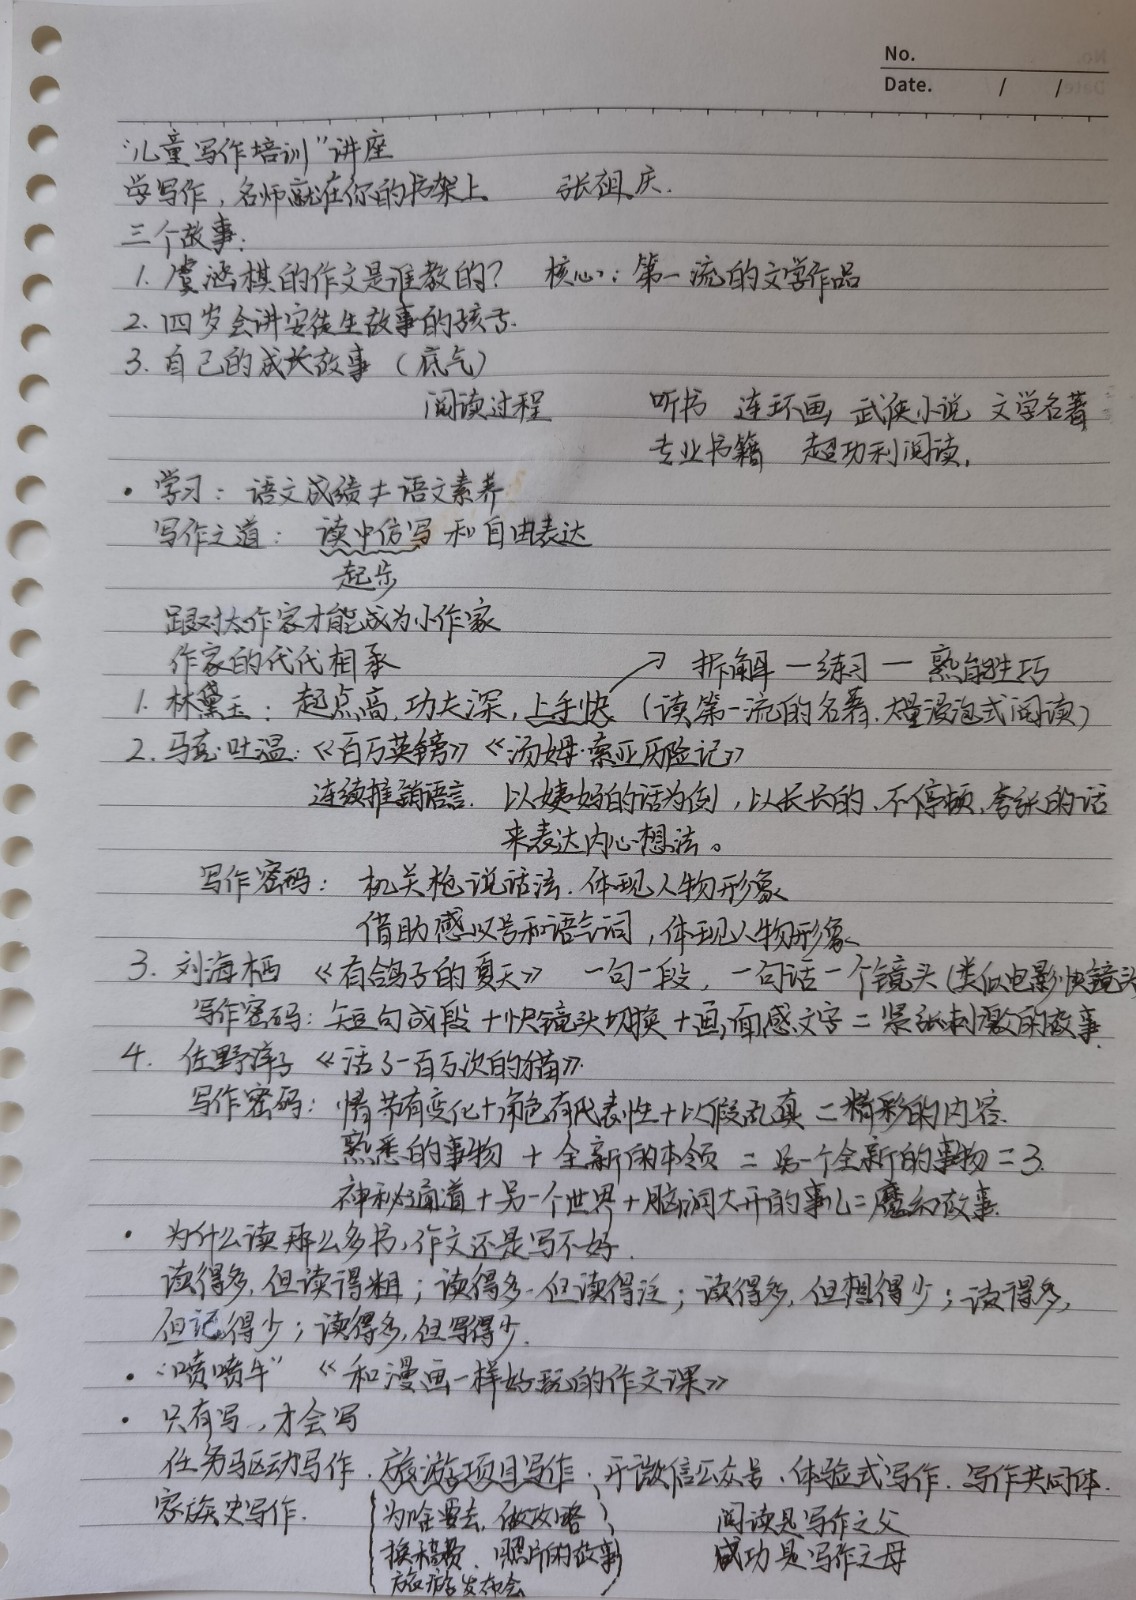 No.
Date. / /
“儿童写作培训”讲座
学写作，名师就在你的书架上 张祖庆.
三个故事：
1. 虞涵棋的作文是谁教的？ 核心：第一流的文学作品
2. 四岁会讲安徒生故事的孩子.
3. 自己的成长故事（底气）
阅读过程 听书 连环画 武侠小说 文学名著
专业书籍 超功利阅读.
· 学习：语文成绩≠语文素养
写作之道：读中仿写和自由表达
起步
跟对大作家才能成为小作家
作家的代代相承
拆解—练习—熟能生巧
1. 林黛玉：起点高，功夫深，上手快（读第一流的名著，大量浸泡式阅读）
2. 马克·吐温：《百万英镑》《汤姆·索亚历险记》
连续推销语言. 以姨妈的话为例，以长长的、不停顿、夸张的话
来表达内心想法。
写作密码：机关枪说话法，体现人物形象
借助感叹号和语气词，体现人物形象
3. 刘海栖 《有鸽子的夏天》 一句一段，一句话一个镜头（类似电影快镜头
写作密码：短句成段＋快镜头切换＋画面感文字＝紧张刺激的故事.
4. 佐野洋子《活了一百万次的猫》
写作密码：情节有变化＋角色有代表性＋以假乱真＝精彩的内容.
熟悉的事物＋全新的本领＝另一个全新的事物＝3.
神秘通道＋另一个世界＋脑洞大开的事儿＝魔幻故事.
· 为什么读那么多书，作文还是写不好.
读得多，但读得粗；读得多，但读得泛；读得多，但想得少；读得多，
但记得少；读得多，但写得少.
· “喷喷牛”《和漫画一样好玩的作文课》
· 只有写，才会写
任务驱动写作、旅游项目写作、开微信公众号、体验式写作、写作共同体.
家族史写作. 为啥要去、做攻略 阅读是写作之父
换稿费、照片的故事 成功是写作之母
旅游发布会